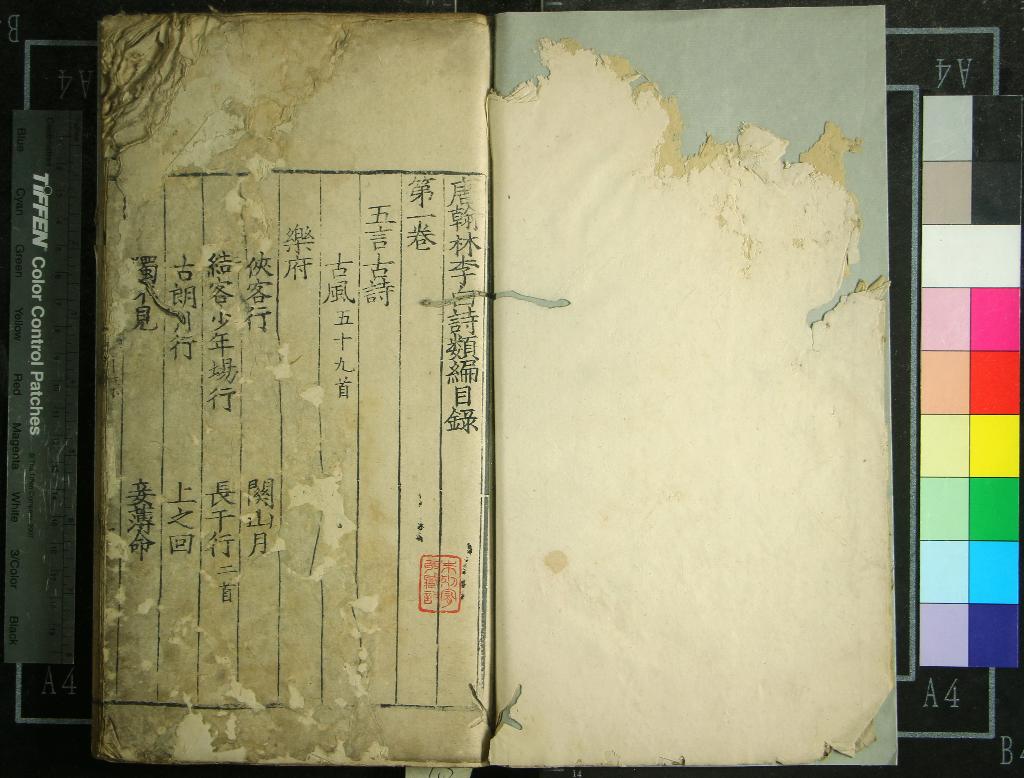 唐翰林李白詩類編目錄
第一卷
五言古詩
古風五十九首
樂府
俠客行 關山月
結客少年場行 長干行二首
古朗月行 上之回
獨不見 妾薄命
TIFFEN Color Control Patches
Blue Cyan Green Yellow Red Magenta White 3/Color Black
A4
A4
A4
A4
B
B